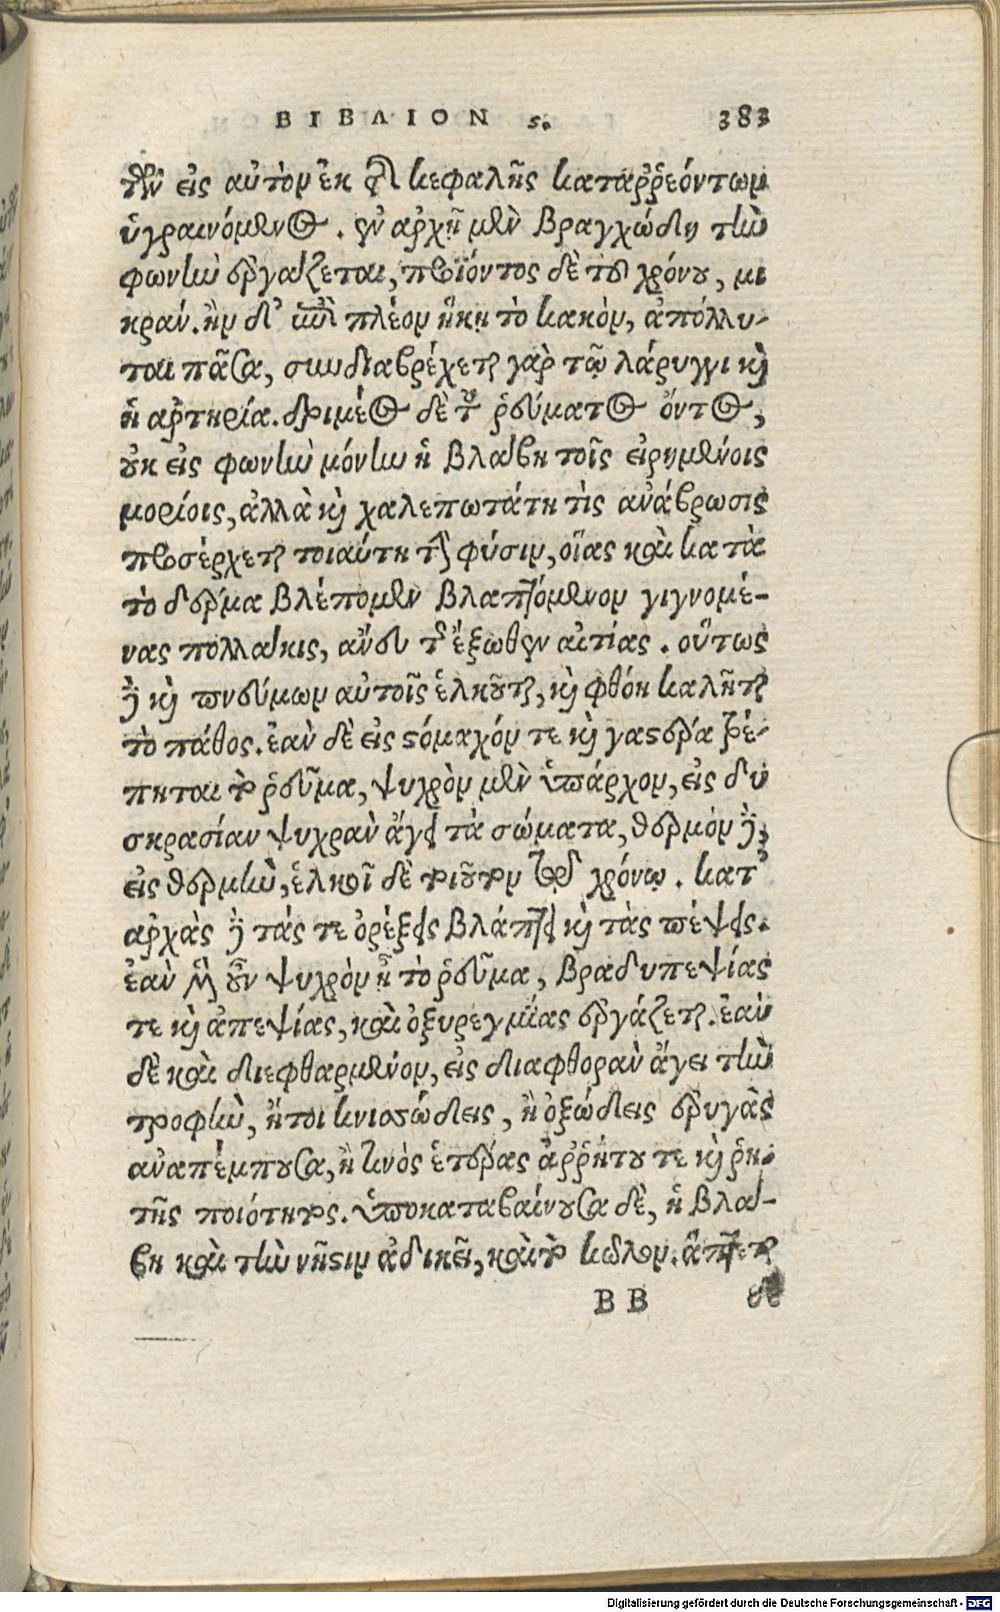 ΒΙΒΛΙΟΝ ς. 383
τῶν εἰς αὐτὸν ἐκ τῆς κεφαλῆς καταῤῥεόντων
ὑγραινόμενος. ἐν ἀρχῇ μὲν βραγχώδη τὴν
φωνὴν ἐργάζεται, προϊόντος δὲ τοῦ χρόνου, μι
κράν. ἢν δ' ἐπὶ πλέον ἥκῃ τὸ κακὸν, ἀπόλλυ-
ται πᾶσα, συνδιαβρέχεται γὰρ τῷ λάρυγγι καὶ
ἡ ἀρτηρία. δριμέος δὲ τοῦ ῥεύματος ὄντος,
οὐκ εἰς φωνὴν μόνην ἡ βλάβη τοῖς εἰρημένοις
μορίοις, ἀλλὰ καὶ χαλεπωτάτη τὶς ἀνάβρωσις
προσέρχεται τοιαύτη τὴν φύσιν, οἵας καὶ κατὰ
τὸ δέρμα βλέπομεν βλαπτόμενον γιγνομέ-
νας πολλάκις, ἄνευ τῆς ἔξωθεν αἰτίας. οὕτως
δὲ καὶ πνεύμων αὐτοῖς ἑλκοῦται, καὶ φθόη καλῆται
τὸ πάθος. ἐὰν δὲ εἰς στόμαχόν τε καὶ γαστέρα τρέ-
πηται τὸ ῥεῦμα, ψυχρὸν μὲν ὑπάρχον, εἰς δυ
σκρασίαν ψυχρὰν ἄγει τὰ σώματα, θερμὸν δὲ,
εἰς θερμὴν, ἑλκοῖ δὲ τοιοῦτον τῷ χρόνῳ. κατ'
ἀρχὰς δὲ τάς τε ὀρέξεις βλάπτει καὶ τὰς πέψεις.
ἐὰν μὲν οὖν ψυχρὸν ᾖ τὸ ῥεῦμα, βραδυπεψίας
τε καὶ ἀπεψίας, καὶ ὀξυρεγμίας ἐργάζεται. ἐὰν
δὲ καὶ διεφθαρμένον, εἰς διαφθορὰν ἄγει τὴν
τροφὴν, ἤτοι κνισώδεις, ἢ ὀξώδεις ἐρυγὰς
ἀναπέμπουσα, ἢ τινὸς ἑτέρας ἀῤῥήτου τε καὶ ῥη-
τῆς ποιότητος. ὑποκαταβαίνουσα δὲ, ἡ βλά-
βη καὶ τὴν νῆστιν ἀδικεῖ, καὶ τὸ κῶλον. ἅπτεται
ΒΒ δὲ
Digitalisierung gefördert durch die Deutsche Forschungsgemeinschaft - DFG